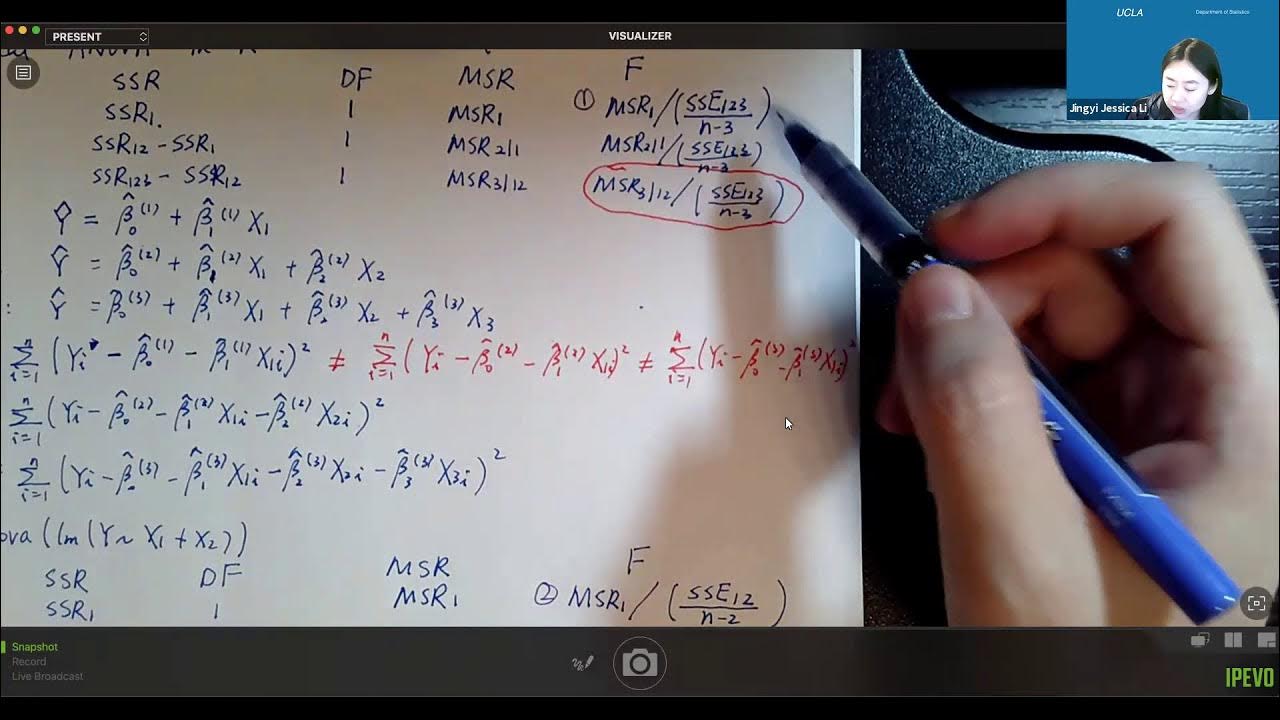 UCLA
Department of Statistics
PRESENT
VISUALIZER
Jingyi Jessica Li
ANOVA IN R
SSR DF MSR F
SSR₁. 1 MSR₁ ① MSR₁/(SSE₁₂₃/n-3)
SSR₁₂ - SSR₁ 1 MSR₂|₁ MSR₂|₁/(SSE₁₂₃/n-3)
SSR₁₂₃ - SSR₁₂ 1 MSR₃|₁₂ MSR₃|₁₂/(SSE₁₂₃/n-3)
Ŷ = β̂₀⁽¹⁾ + β̂₁⁽¹⁾ X₁
Ŷ = β̂₀⁽²⁾ + β̂₁⁽²⁾ X₁ + β̂₂⁽²⁾ X₂
: Ŷ = β̂₀⁽³⁾ + β̂₁⁽³⁾ X₁ + β̂₂⁽³⁾ X₂ + β̂₃⁽³⁾ X₃
∑ᵢ₌₁ⁿ (Yᵢ - β̂₀⁽¹⁾ - β̂₁⁽¹⁾ X₁ᵢ)² ≠ ∑ᵢ₌₁ⁿ (Yᵢ - β̂₀⁽²⁾ - β̂₁⁽²⁾ X₁ᵢ)² ≠ ∑ᵢ₌₁ⁿ (Yᵢ - β̂₀⁽³⁾ - β̂₁⁽³⁾ X₁ᵢ)²
∑ᵢ₌₁ⁿ (Yᵢ - β̂₀⁽²⁾ - β̂₁⁽²⁾ X₁ᵢ - β̂₂⁽²⁾ X₂ᵢ)²
∑ᵢ₌₁ⁿ (Yᵢ - β̂₀⁽³⁾ - β̂₁⁽³⁾ X₁ᵢ - β̂₂⁽³⁾ X₂ᵢ - β̂₃⁽³⁾ X₃ᵢ)²
ova (lm (Y ~ X₁ + X₂))
SSR DF MSR F
SSR₁ 1 MSR₁ ② MSR₁/(SSE₁₂/n-2)
Snapshot
Record
Live Broadcast
IPEVO